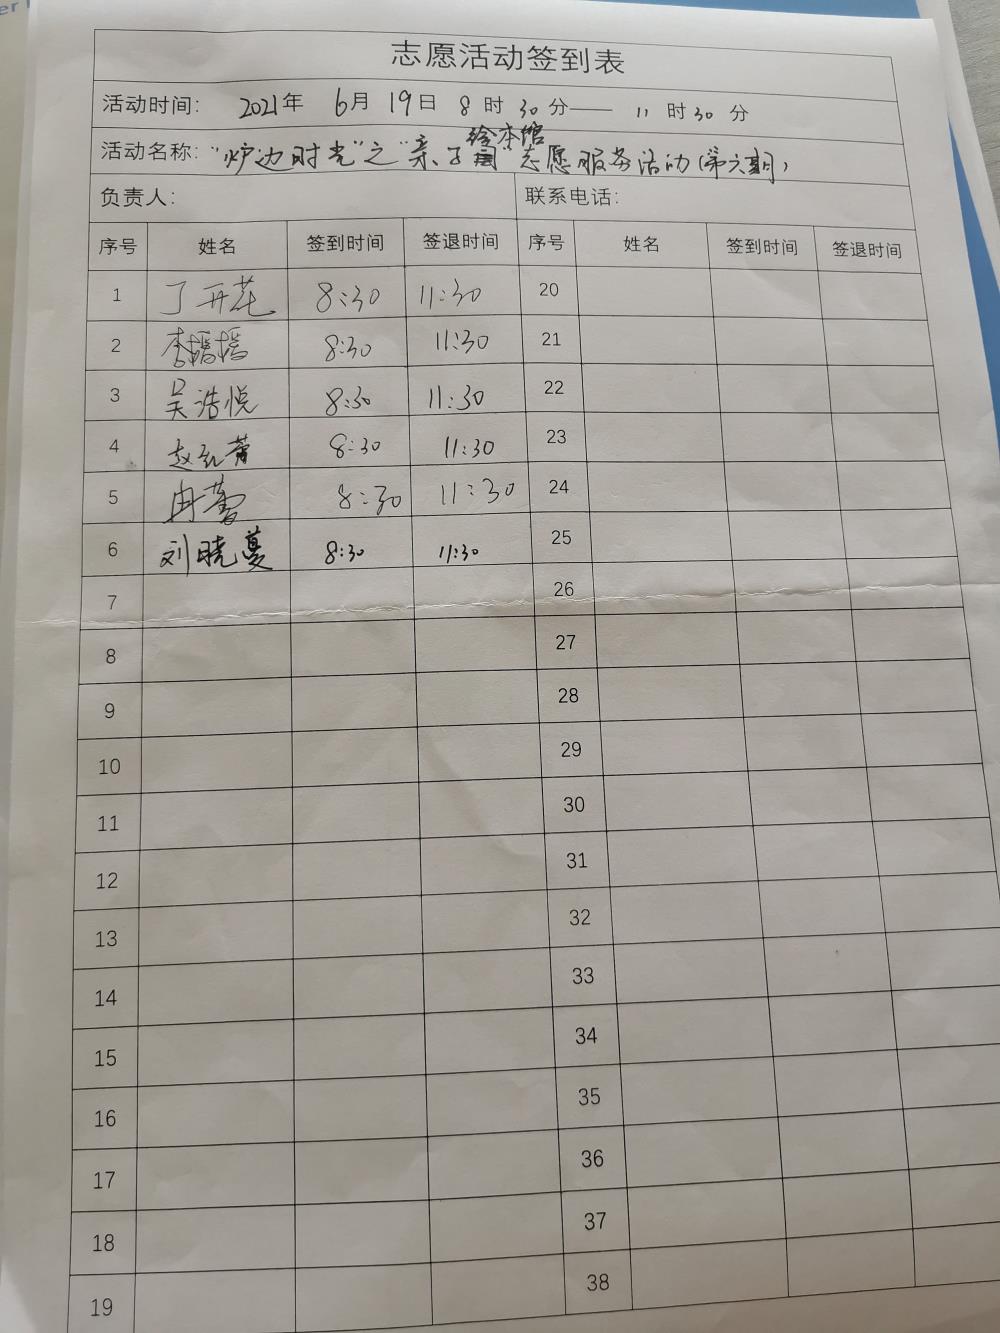 志愿活动签到表
活动时间: 2021年 6月 19日 8 时 30 分—— 11 时 30 分
活动名称: "炉边时光"之"亲子绘本馆"志愿服务活动(第六期)
负责人: 联系电话:
序号 姓名 签到时间 签退时间 序号 姓名 签到时间 签退时间
1 丁开花 8:30 11:30 20
2 李 8:30 11:30 21
3 吴浩悦 8:30 11:30 22
4 赵 8:30 11:30 23
5 冉蕾 8:30 11:30 24
6 刘晓蔓 8:30 11:30 25
7 26
8 27
9 28
10 29
11 30
12 31
13 32
14 33
15 34
16 35
17 36
18 37
19 38